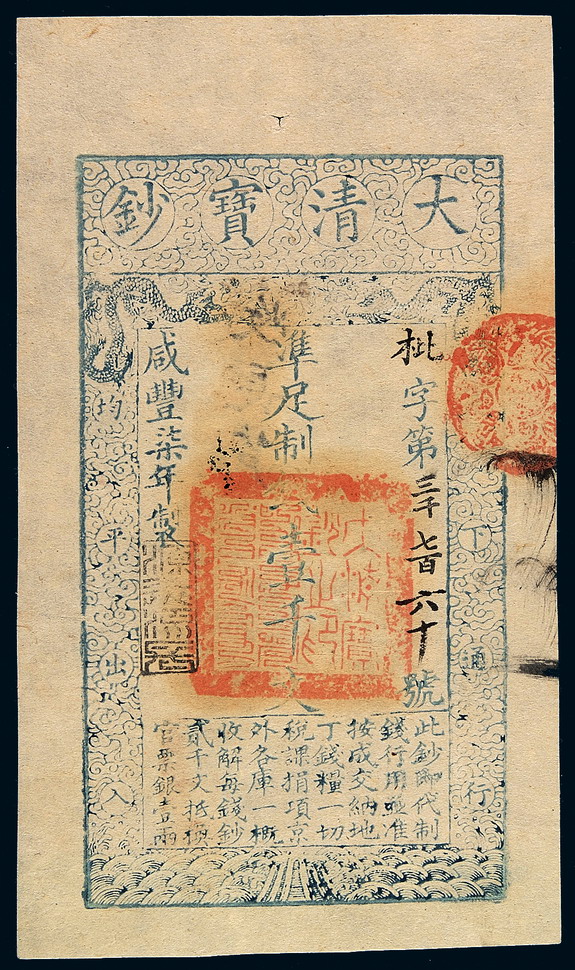 大清寶鈔
下通行
枇字第三千七百六十號
準足制錢壹千文
咸豐柒年製
均平出入
此鈔即代制
錢行用並准
按成交納地
丁錢糧一切
稅課捐項京
外各庫一概
收解每錢鈔
貳千文抵換
官票銀壹兩